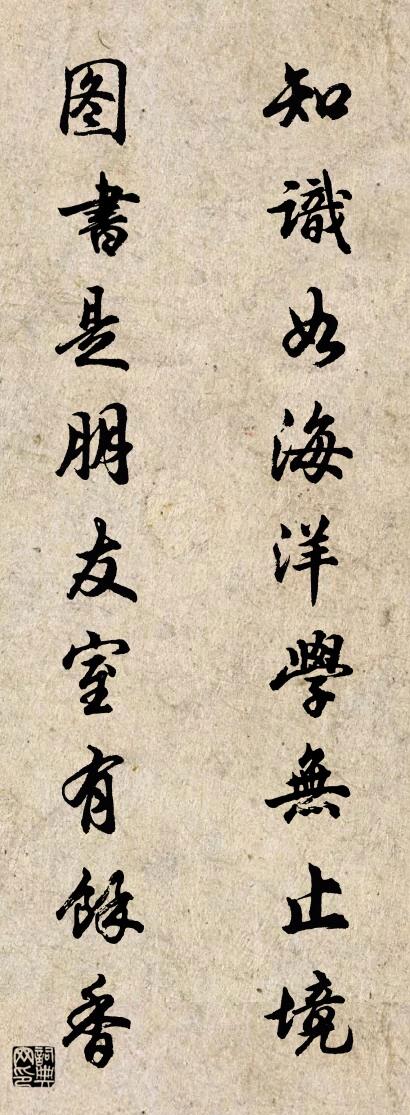 知識如海洋學無止境
图書是朋友室有餘香
詞典网印